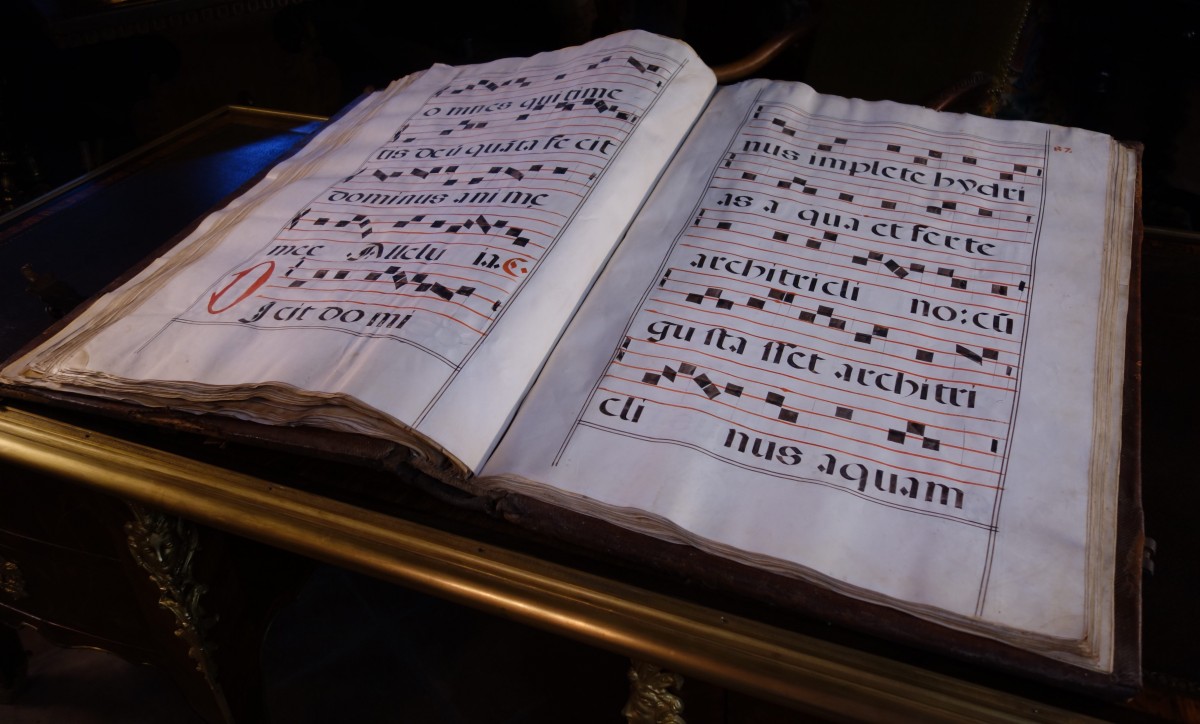 omnes qui time
tis deū quāta fecit
dominus anime
mee Allelu ia. C.
Dicit domi
67.
nus implete hydri
as aqua et ferte
architricli no: cū
gustasset architri
cli nus aquam